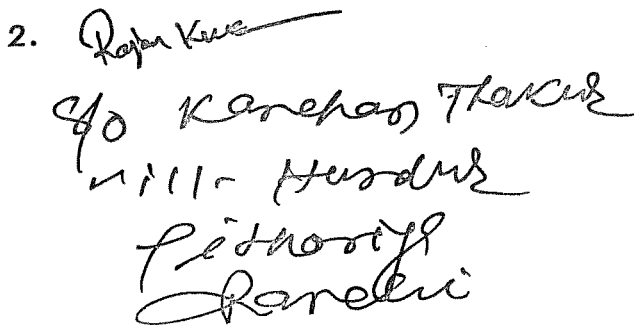 2. Rajan Kum
S/o Kanchan Thakur
vill- Hundur
Pithoriya
Ranchi